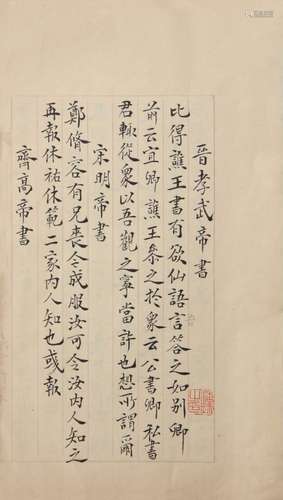 晉孝武帝書
比得譙王書有欲仙語言答之如別卿
前云宜卿譙王參之於衆云公書卿私書
君輒從衆以吾觀之寧當許也想所謂爾
宋明帝書
鄭脩容有兄喪今成服汝可令汝内人知之
再報休祐休範二家内人知也彧報
齊高帝書